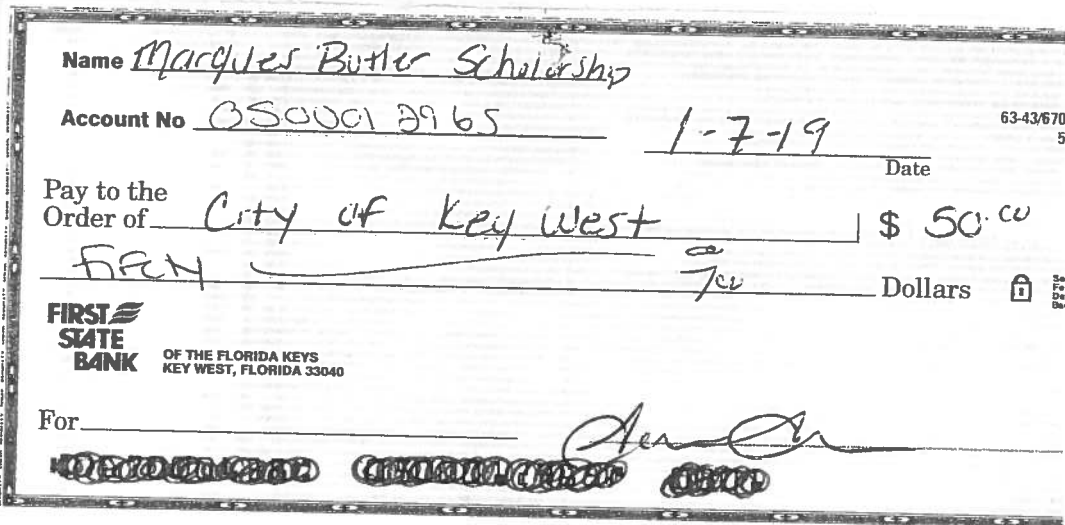 Name Marques Butler Scholarship
Account No 0500012965
1-7-19
63-43/670
5
Date
Pay to the
Order of City of Key West $ 50.00
Fifty 00/100 Dollars
FIRST
STATE
BANK
OF THE FLORIDA KEYS
KEY WEST, FLORIDA 33040
For